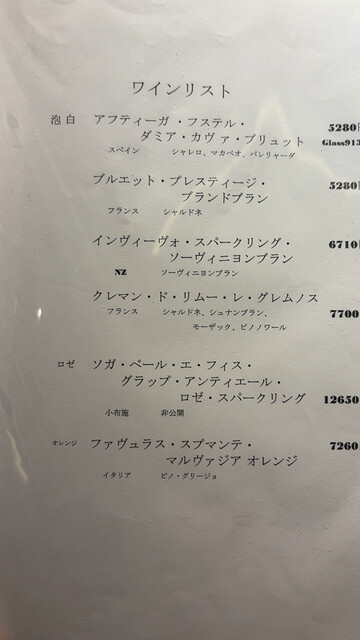 ワインリスト
泡 白 アフティーガ ・フステル・ 5280
ダミア・カヴァ・ブリュット Glass913
スペイン シャレロ、マカベオ、パレリャーダ
ブルエット・プレスティージ・ 5280
ブランドブラン
フランス シャルドネ
インヴィーヴォ・スパークリング・ 6710
ソーヴィニヨンブラン
NZ ソーヴィニヨンブラン
クレマン・ド・リムー・レ・グレムノス
フランス シャルドネ、シュナンブラン、 7700
モーザック、ピノノワール
ロゼ ソガ・ペール・エ・フィス・
グラップ・アンティエール・
ロゼ・スパークリング 12650
小布施 非公開
オレンジ ファヴュラス・スプマンテ・ 7260
マルヴァジア オレンジ
イタリア ピノ・グリージョ